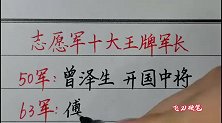 志愿军十大王牌军长
50军:曾泽生 开国中将
63军:傅
飞刀硬笔